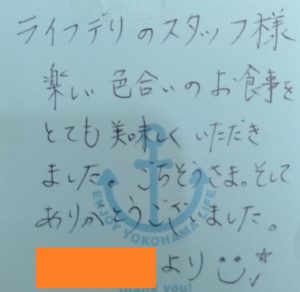 ライフデリのスタッフ様
楽しい色合いのお食事を
とても美味しくいただき
ました。ごちそうさま。そして
ありがとうございました。
より
ENJOY YOKOHAMA LIFE
thank you!